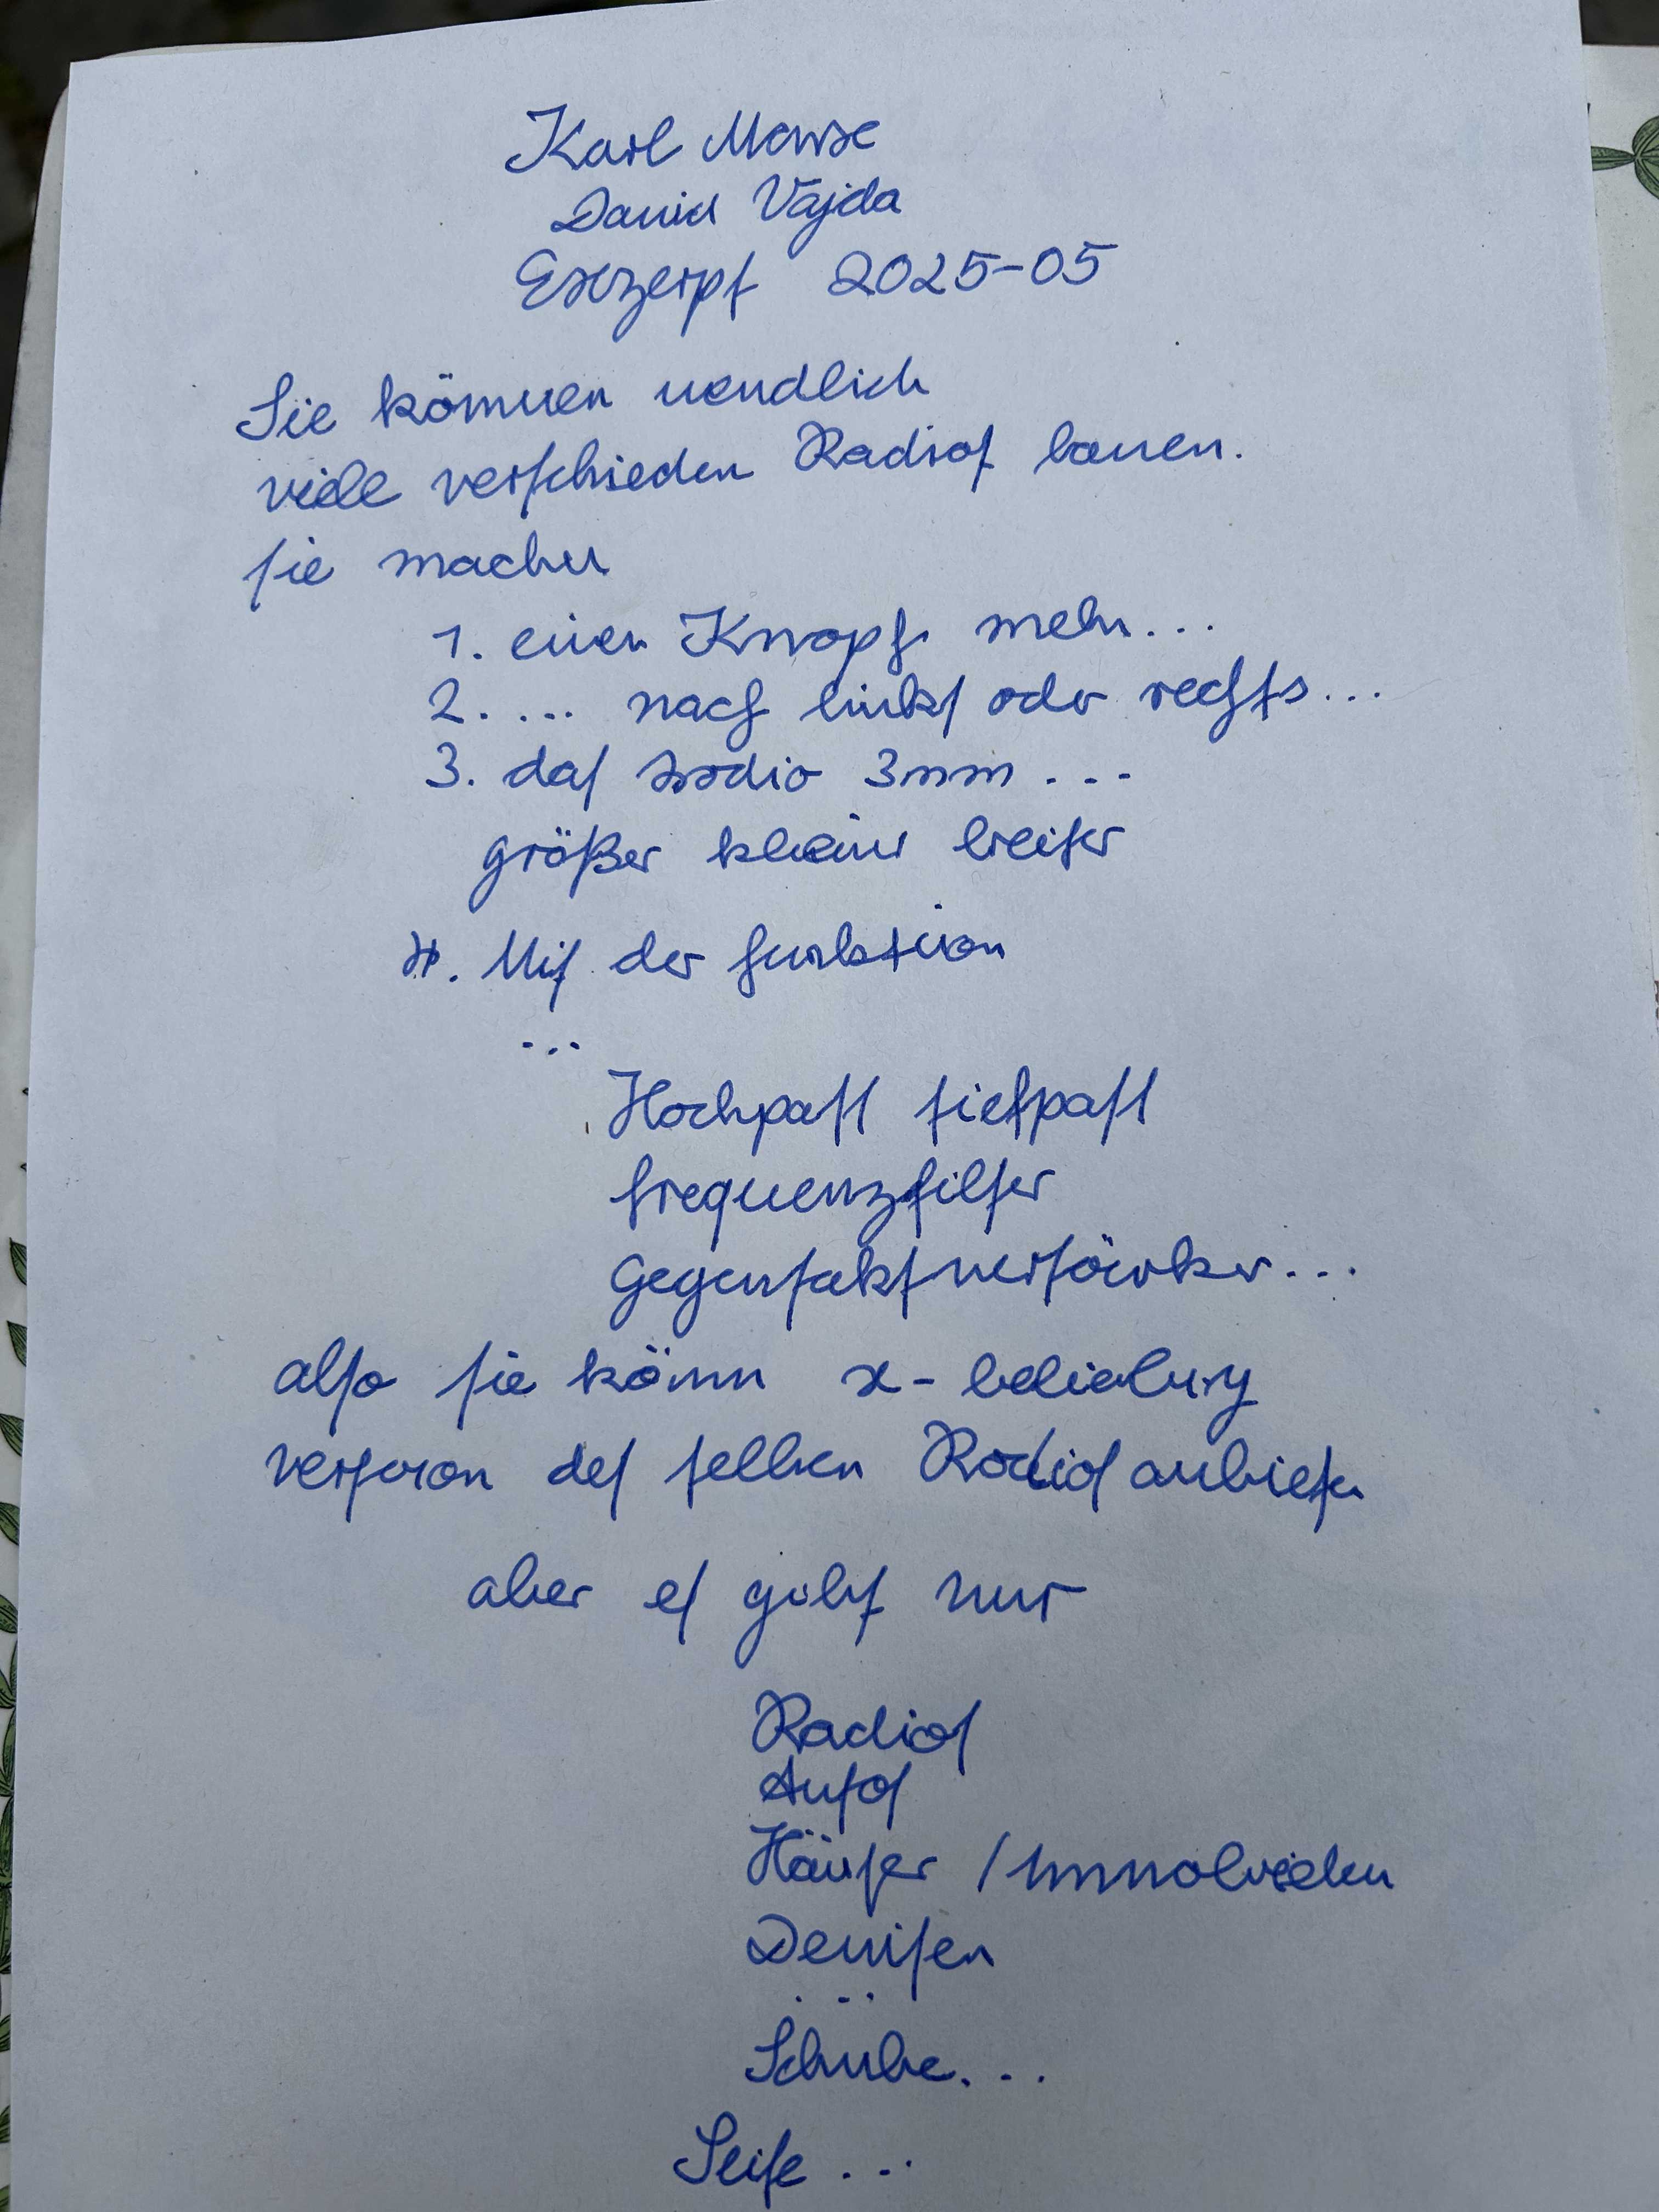 Karl Marx
David Vajda
Exzerpt 2025-05
Sie können uendlich
viele verschieden Radios bauen.
sie machen
1. einen Knopf mehr...
2. ... nach links oder rechts...
3. das Radio 3mm ...
größer kleiner breiter
4. Mit der funktion
...
Hochpass tiefpass
frequenzfilter
Gegentaktverstärker...
also sie könn x-beliebig
version des selben Radios anbieten
aber es gibt nur
Radios
Autos
Häuser / Immobilien
Devisen
...
Schuhe...
Seife ...